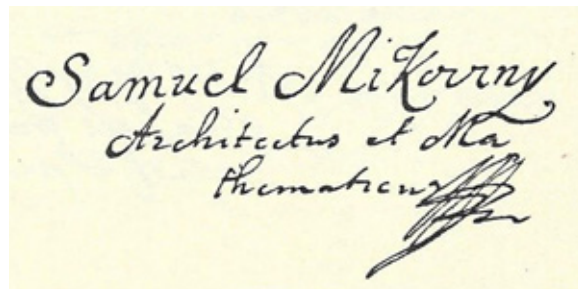 Samuel Mikovíny
Architectus et Ma
thematicus